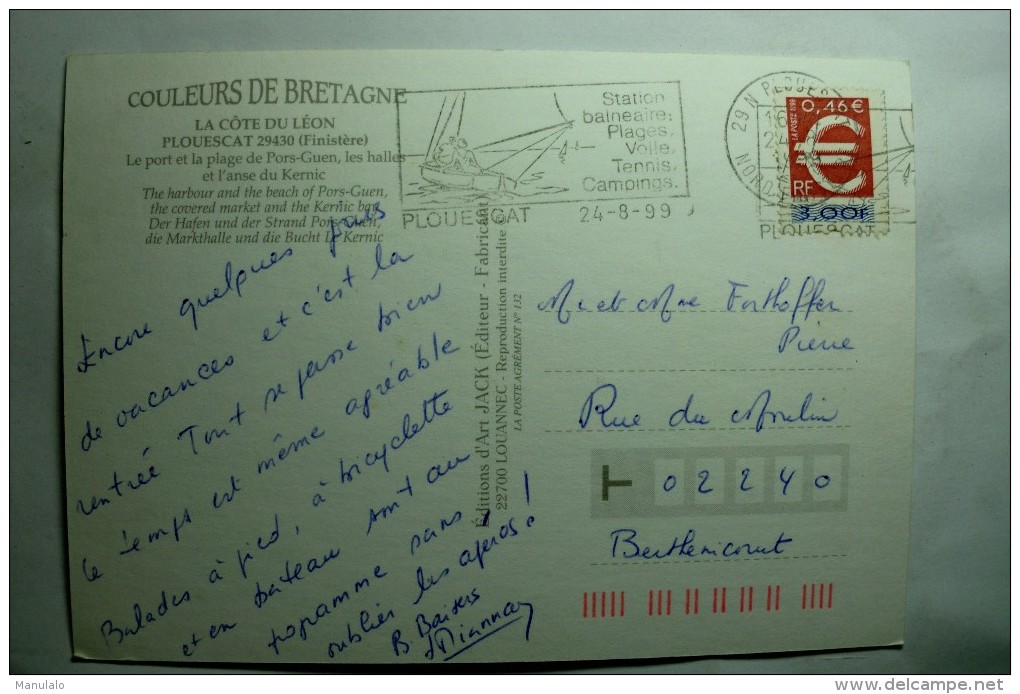 COULEURS DE BRETAGNE
LA CÔTE DU LÉON
PLOUESCAT 29430 (Finistère)
Le port et la plage de Pors-Guen, les halles
et l'anse du Kernic
The harbour and the beach of Pors-Guen,
the covered market and the Kernic bay
Der Hafen und der Strand Pors-Guen,
die Markthalle und die Bucht Le Kernic
Encore quelques jours
de vacances et c'est la
rentrée Tout se passe bien
le temps est même agréable
Balades à pied, à bicyclette
et en bateau sont au
programme sans
oublier les apéros !
B. Baisers
Éditions d'Art JACK (Éditeur - Fabricant)
22700 LOUANNEC - Reproduction interdite ©
LA POSTE AGRÉMENT N° 132
Station
balneaire:
Plages,
Voile,
Tennis,
Campings.
PLOUESCAT 24-8-99
29 N PLOUES
NORD
0,46€
LA POSTE 1999
€
RF
3,00F
PLOUESCAT
M. et Mme Forthoffer
Pierre
Rue du Moulin
T 02240
Berthenicourt
Manulalo
delcampe.net